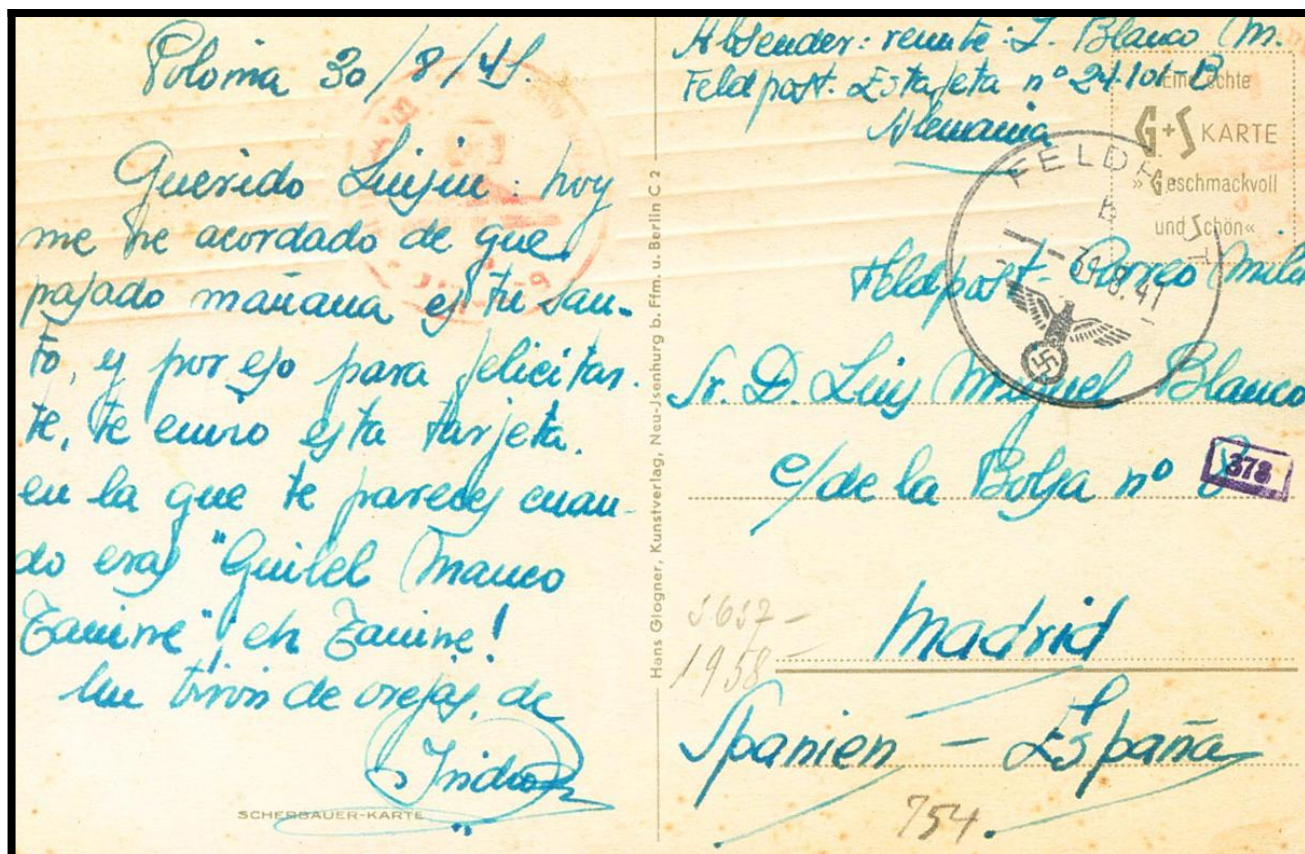 Polonia 30/8/41.
Querido Luisin: hoy
me he acordado de que
pasado mañana es tu san-
to, y por eso para felicitar-
te, te envio esta tarjeta.
en la que te pareces cuan-
do eras "Guilel Manco
Zanine" eh Zanine!
Un tiron de orejas, de
Isidro
SCHERBAUER-KARTE
Hans Glogner, Kunstverlag, Neu-Jsenburg b. Ffm. u. Berlin C 2
Absender: remite: I. Blanco M.
Feldpost. Estafeta nº 24.101-B
Alemania
Eine echte
G+S KARTE
»Geschmackvoll
und Schön«
FELDP
b
30.8.41
Feldpost- Correo Mili
Sr. D. Luis Miguel Blanco
c/ de la Bolsa nº
378
Madrid
1958-
Spanien - España
754.